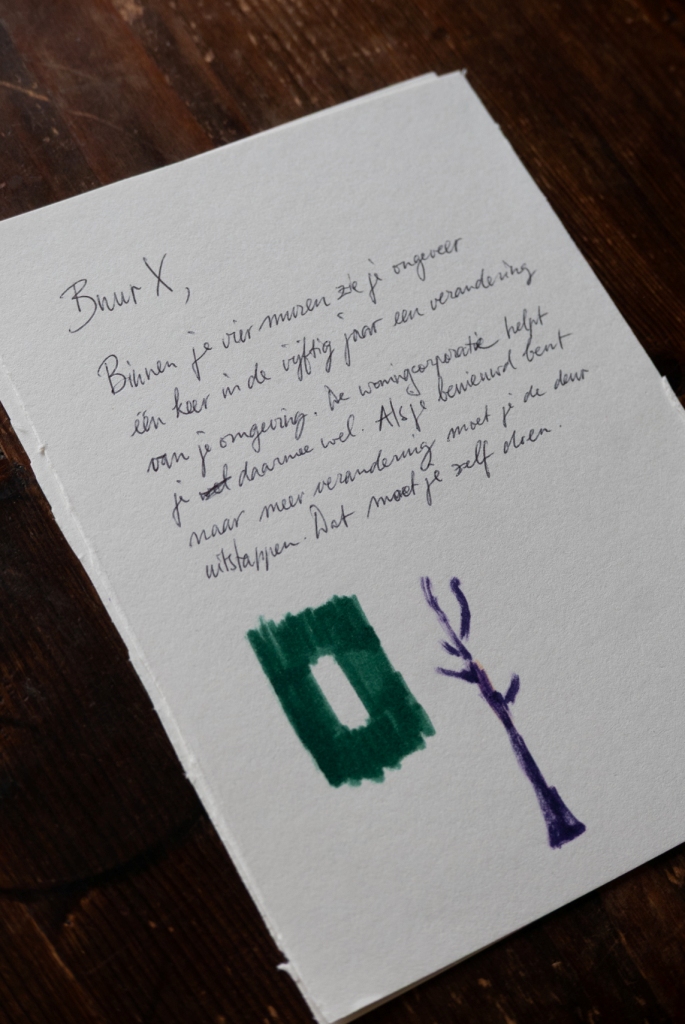 Buur X,
Binnen je vier muren zie je ongeveer
één keer in de vijftig jaar een verandering
van je omgeving. De woningcorporatie helpt
je daarmee wel. Als je benieuwd bent
naar meer verandering moet je de deur
uitstappen. Dat moet je zelf doen.